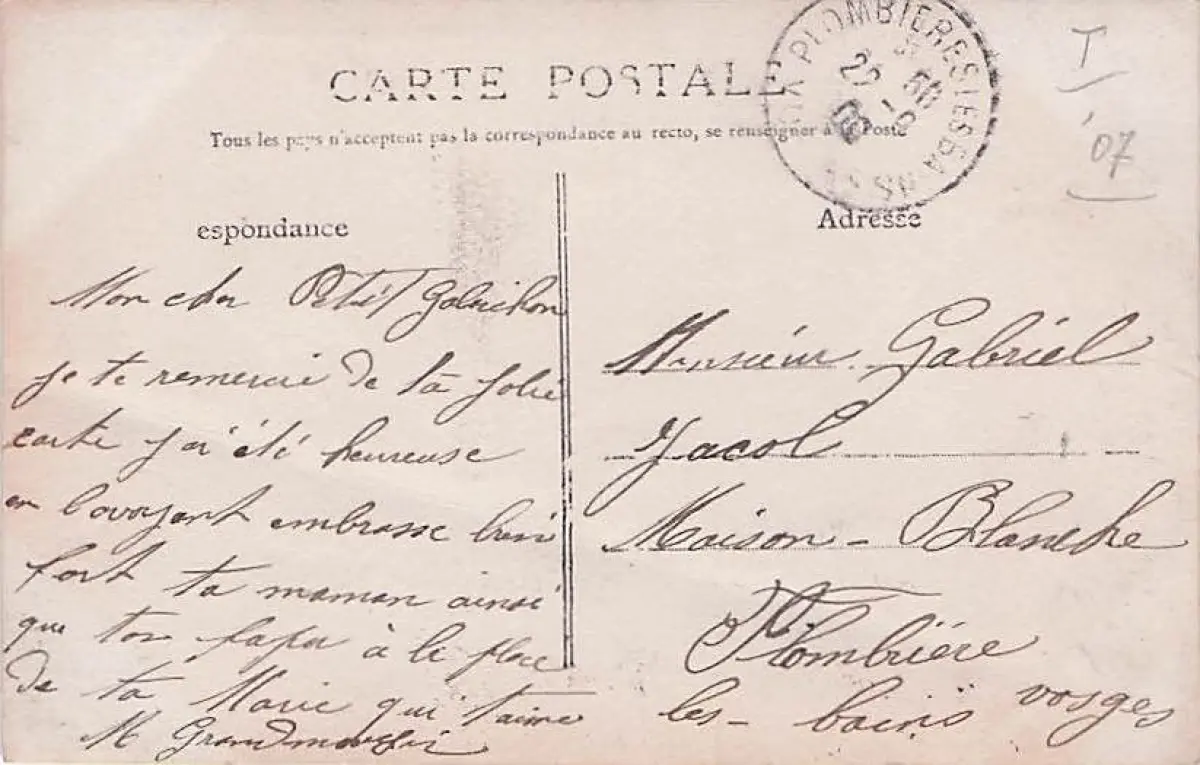 CARTE POSTALE
Tous les pays n'acceptent pas la correspondance au recto, se renseigner à la Poste
PLOMBIERES LES BAINS
22 -9
T
'07
espondance
Adresse
Mon cher Petit
je te remercie de ta jolie
carte j'ai été heureuse
en lavoyant embrasse bien
fort ta maman ainsi
que ton papa à la place
de ta Marie qui t'aime
M
Monsieur Gabriel
Jacol
Maison - Blanche
Plombière
les - bains vosges